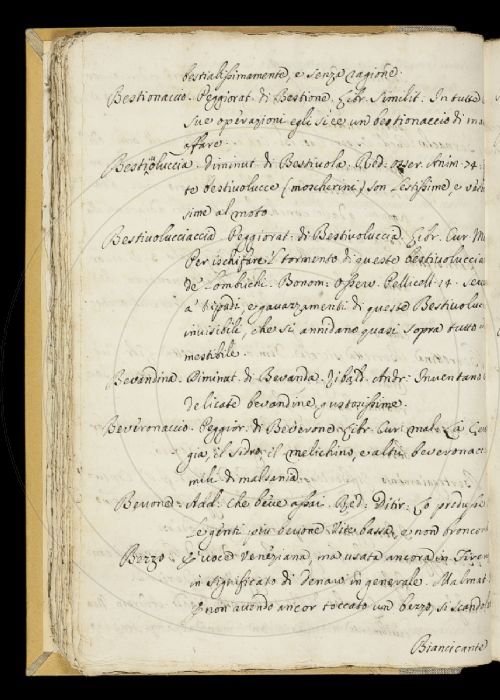 bestialissimamente, e senza ragione.
Bestionaccio. Peggiorat. di Bestione. Libr. Similit. In tutte
Sue operazioni egli si è un bestionaccio di ma
affare.
Bestiuoluccia. diminut. di Bestivola. Red. Osser. Anim. 74.
te bestivolucce (moscherini) son lestissime, e
sime al moto
Bestivolucciaccia. Peggiorat. di Bestivoluccia. Libr. Cur. M
Per ischifare 'l tormento di queste bestivoluccia
de' Lombrichi. Bonom: Osserv. Pellicell. 14.
a' ripudi, e gavazzamenti di queste Bestivolu
invisibili, che si annidano quasi sopra tutto
mestibile.
Bevandina. Diminut. di Bevanda. Zibald. Andr: Inventano
delicate bevandine gustosissime.
Beveronaccio. Peggior: di Beverone. Libr. Cur. mal. La Cer
gia, il Sidro, il melichino, e altri beveronac
mili di malsania.
Bevone. Add. Che beve assai. Red. Ditir. Lo produsse
Le genti più bevone Vite bassa, e non broncon
Bezzo. È voce Veneziana, ma usata ancora in Firen
in significato di denaro in generale. Malmat
E non avendo ancor toccato un bezzo, si scandol
Biancicante